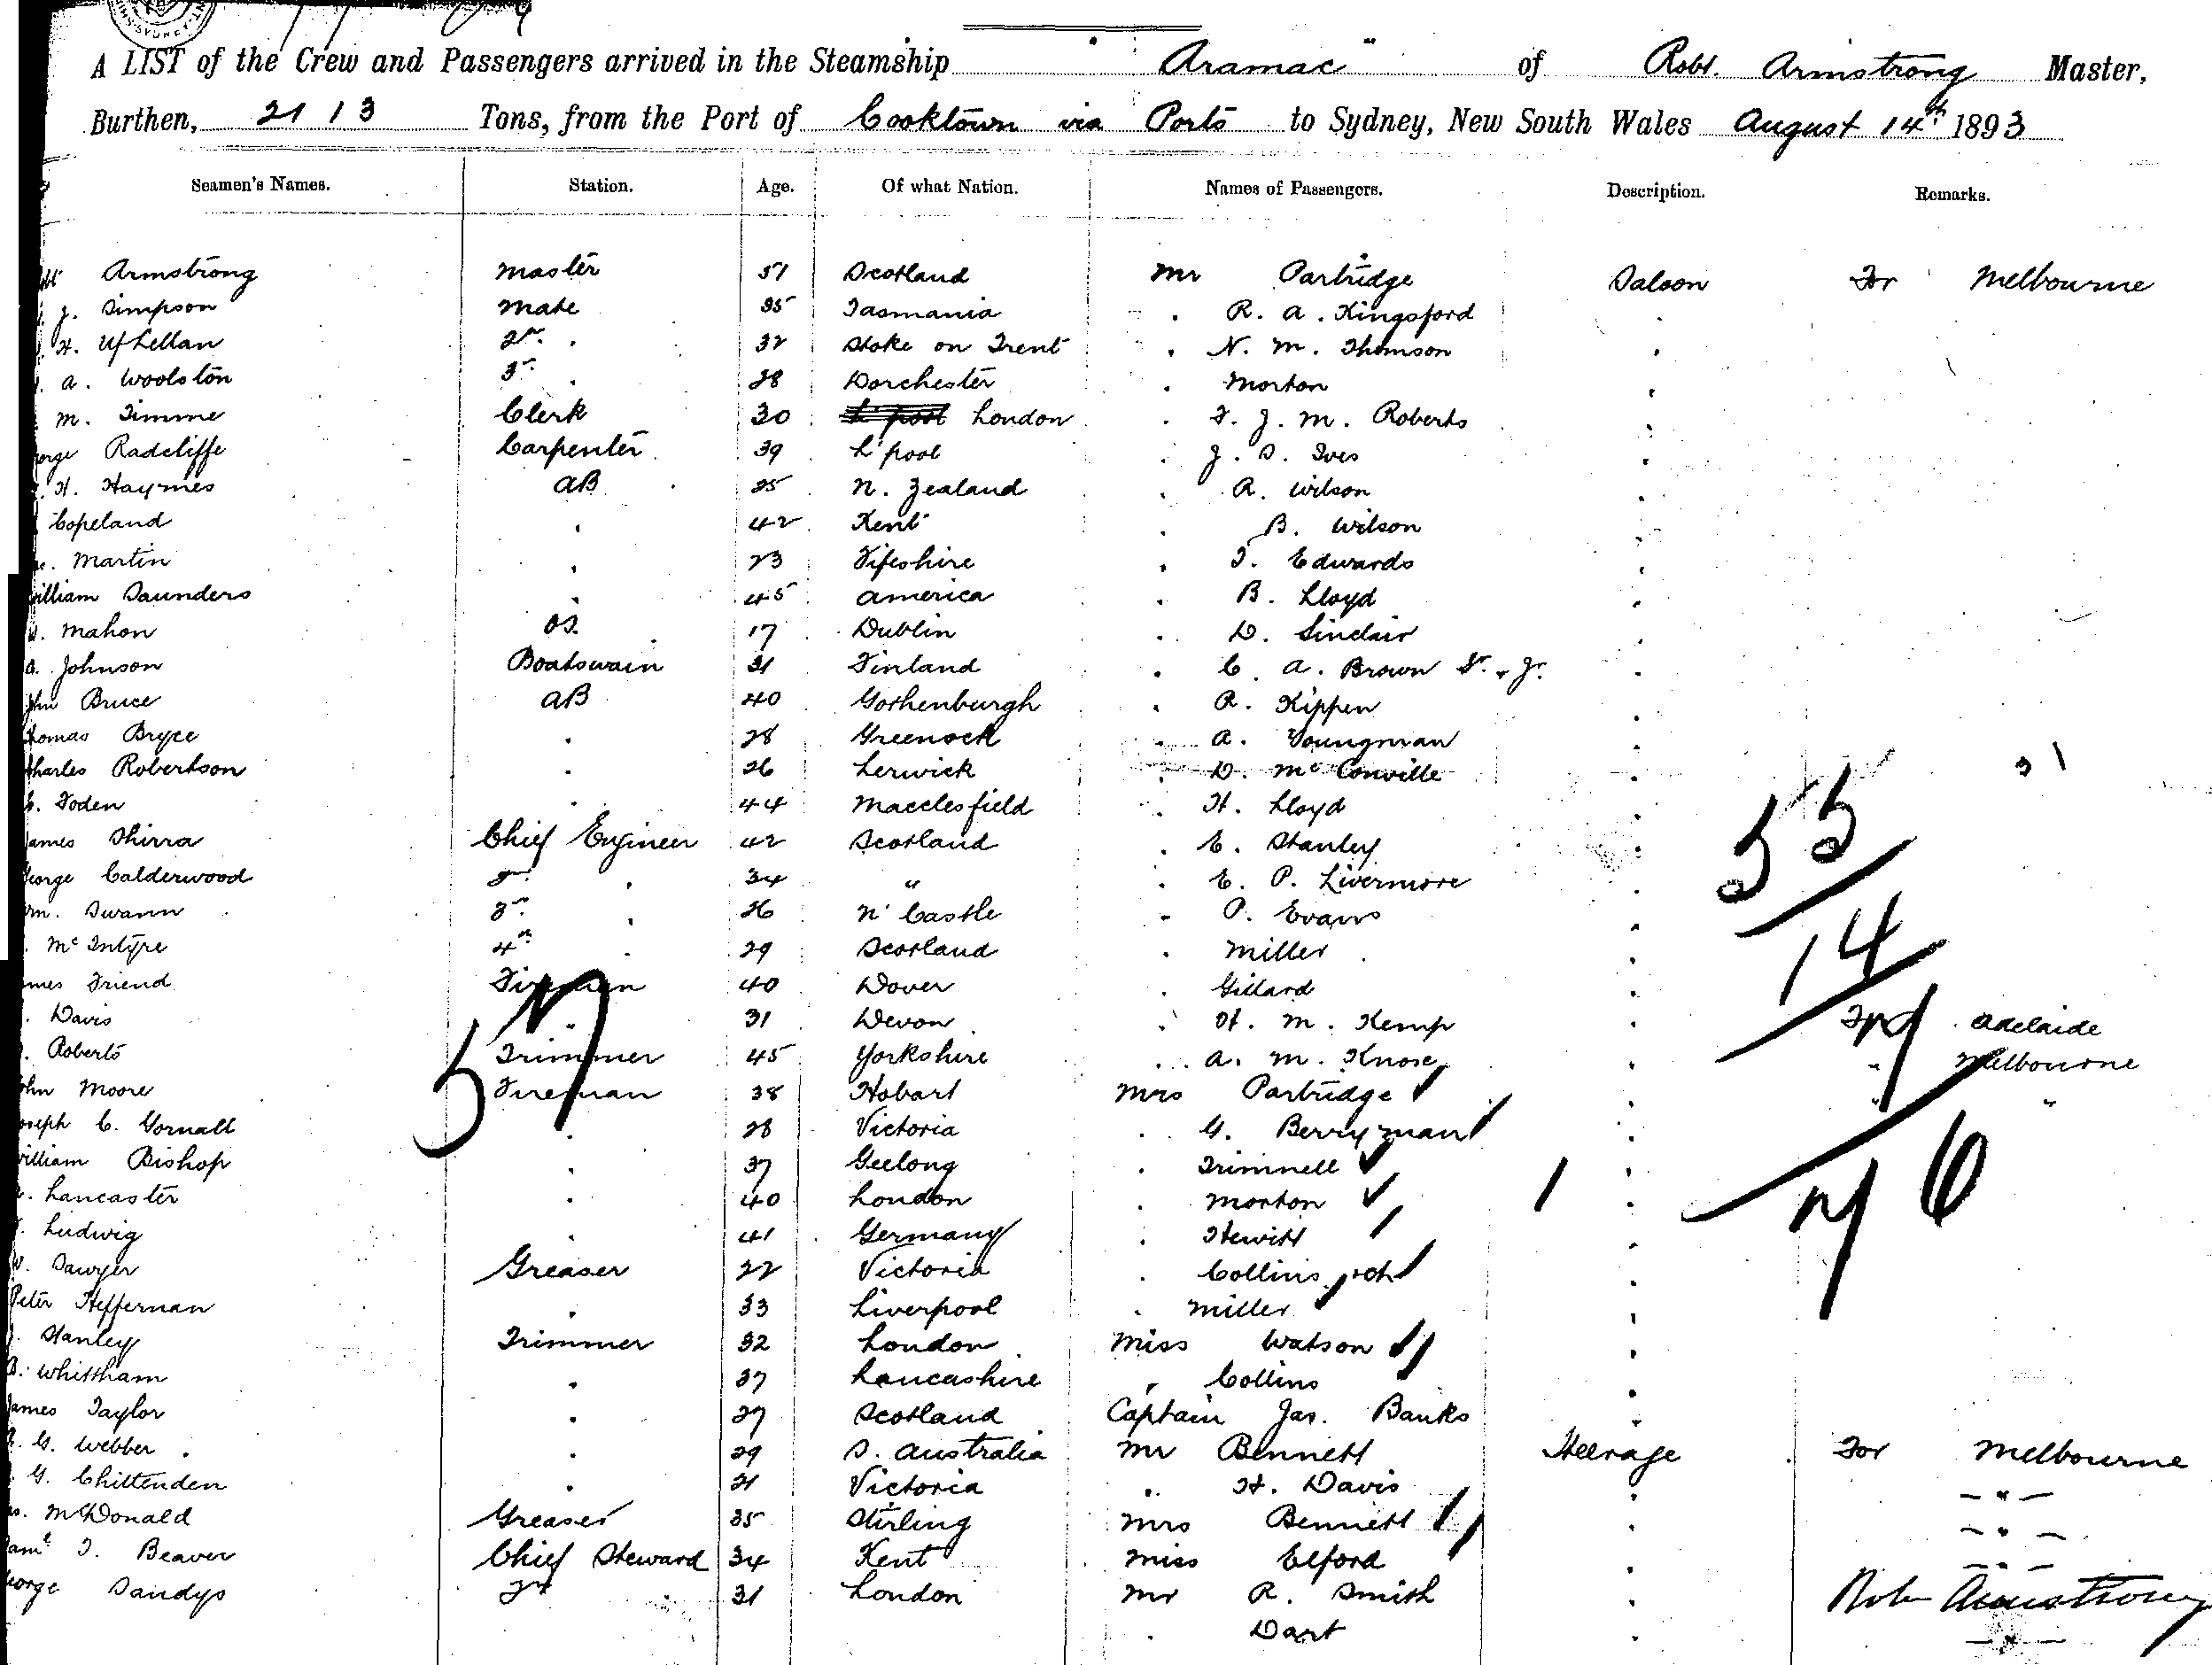 A LIST of the Crew and Passengers arrived in the Steamship "Aramac" of Robt. Armstrong Master,
Burthen, 2113 Tons, from the Port of Cooktown via Ports to Sydney, New South Wales August 14th 1893
Seamen's Names. Station. Age. Of what Nation. Names of Passengers. Description. Remarks.
Armstrong Master 51 Scotland Mr Partridge Saloon For Melbourne
J. Simpson Mate 35 Tasmania " R. A. Kingsford "
H. McLellan 2nd " 32 Stoke on Trent " N. M. Thomson "
A. Woolston 3rd " 28 Dorchester " Morton "
M. Timme Clerk 30 London " F. J. M. Roberts "
orge Radcliffe Carpenter 39 L'pool " J. S. Ives "
H. Haymes AB 25 N. Zealand " R. Wilson "
Copeland " 42 Kent " B. Wilson "
Martin " 23 Fifeshire " T. Edwards "
illiam Saunders " 45 America " B. Lloyd "
Mahon OS. 17 Dublin " D. Sinclair "
A. Johnson Boatswain 31 Finland " C. A. Brown Sr. & Jr. "
ohn Bruce AB 40 Gothenburgh " R. Kippen "
homas Bryce " 28 Greenock " A. Youngman "
harles Robertson " 26 Lerwick " D. McConville "
Foden " 44 Macclesfield " H. Lloyd "
James Shirra Chief Engineer 42 Scotland " E. Stanley "
George Calderwood 2nd " 34 " " E. P. Livermore "
Wm. Swann 3rd " 26 N'Castle " P. Evans "
McIntyre 4th " 29 Scotland " Miller "
mes Friend Fireman 40 Dover " Gillard "
Davis " 31 Devon " H. M. Kemp " For Adelaide
Roberts Trimmer 45 Yorkshire " A. M. Knose " " Melbourne
ohn Moore Fireman 38 Hobart Mrs Partridge " " "
oseph C. Gornall " 28 Victoria " G. Berryman "
illiam Bishop " 37 Geelong " Trimnell "
Lancaster " 40 London " Morton "
Ludwig " 41 Germany " Hewitt "
W. Sawyer Greaser 22 Victoria " Collins "
Peter Heffernan " 33 Liverpool " Miller "
Stanley Trimmer 32 London Miss Watson "
B. Whittham " 37 Lancashire " Collins "
James Taylor " 27 Scotland Captain Jas. Banks "
G. Webber " 29 S. Australia Mr Bennett Steerage For Melbourne
G. Chittenden " 21 Victoria " H. Davis " "
McDonald Greaser 35 Stirling Mrs Bennett " "
Saml T. Beaver Chief Steward 34 Kent Miss Elford " "
eorge Sandys 2nd 31 London Mr R. Smith " Robt Armstrong
" Dart " "
55
14
7
76
57